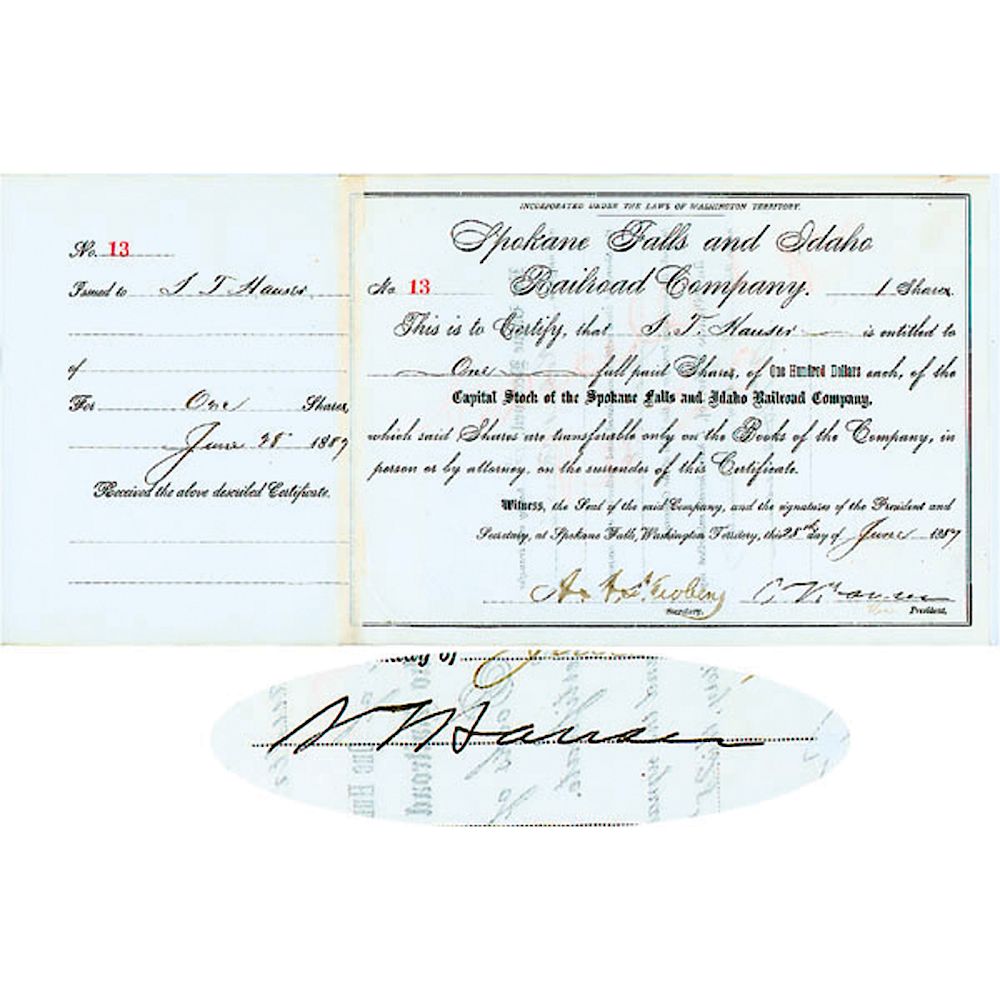 No. 13
Issued to S T Hauser
of
For One Shares
June 28 1887
Received the above described Certificate.
INCORPORATED UNDER THE LAWS OF WASHINGTON TERRITORY.
Spokane Falls and Idaho
No. 13 Railroad Company. 1 Shares.
This is to Certify, that S. T. Hauser is entitled to
One full paid Shares, of One Hundred Dollars each, of the
Capital Stock of the Spokane Falls and Idaho Railroad Company,
which said Shares are transferable only on the Books of the Company, in
person or by attorney, on the surrender of this Certificate.
Witness, the Seal of the said Company, and the signatures of the President and
Secretary, at Spokane Falls, Washington Territory, this 28th day of June 1887
Secretary. President.
day of
S T Hauser